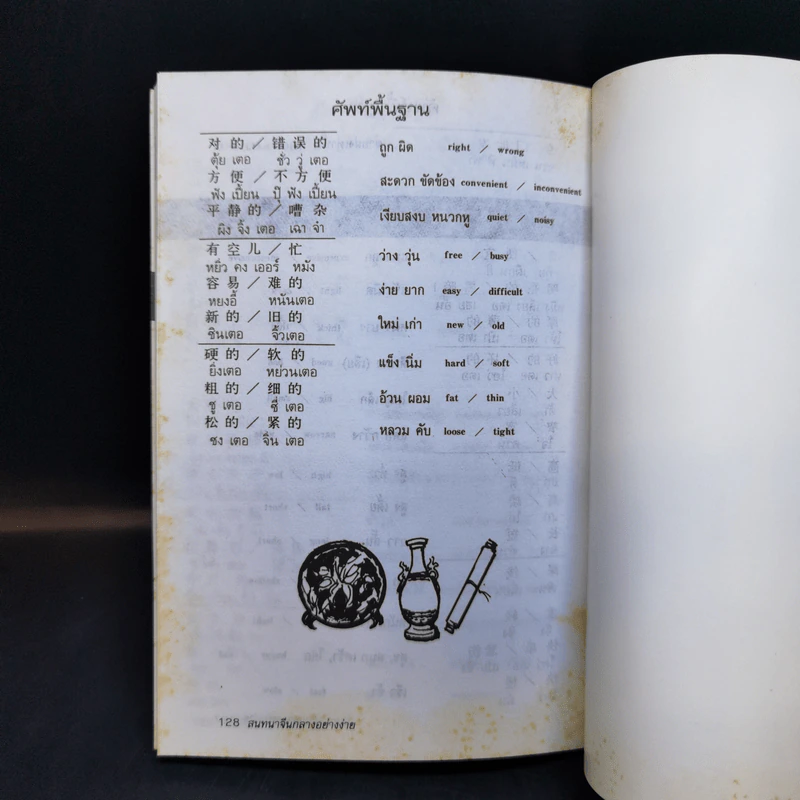 ศัพท์พื้นฐาน
对 的 / 错 误 的 ถูก ผิด right / wrong
ตุ้ย เตอ ชั่ว วู่ เตอ
方 便 / 不 方 便 สะดวก ขัดข้อง convenient / inconvenient
ฟัง เปี้ยน ปุ๊ ฟัง เปี้ยน
平 静 的 / 嘈 杂 เงียบสงบ หนวกหู quiet / noisy
ผิง จิ้ง เตอ เฉา จ๋า
有 空 儿 / 忙 ว่าง วุ่น free / busy
หยิ่ว คง เออร์ หมัง
容 易 / 难 的 ง่าย ยาก easy / difficult
หยงอี้ หนันเตอ
新 的 / 旧 的 ใหม่ เก่า new / old
ซินเตอ จิ้วเตอ
硬 的 / 软 的 แข็ง นิ่ม hard / soft
ยิ่งเตอ หย่วนเตอ
粗 的 / 细 的 อ้วน ผอม fat / thin
ชู เตอ ซี่ เตอ
松 的 / 紧 的 หลวม คับ loose / tight
ซง เตอ จิ่น เตอ
128 สนทนาจีนกลางอย่างง่าย